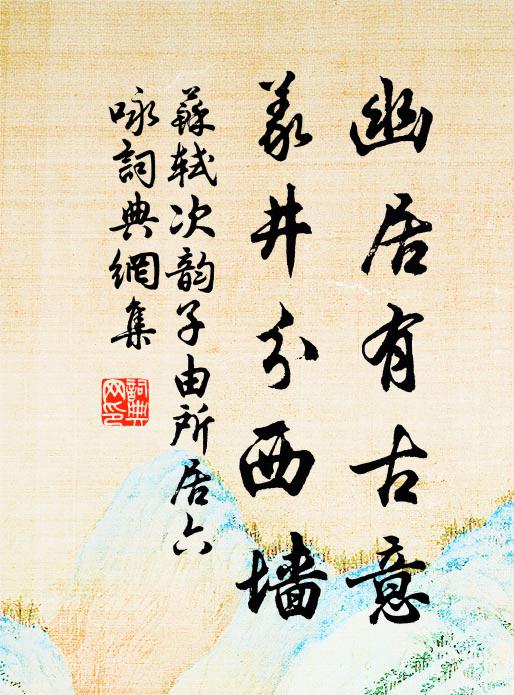 幽居有古意
義井分西墻
蘇軾次韵子由所居六
咏詞典網集
詞典網印